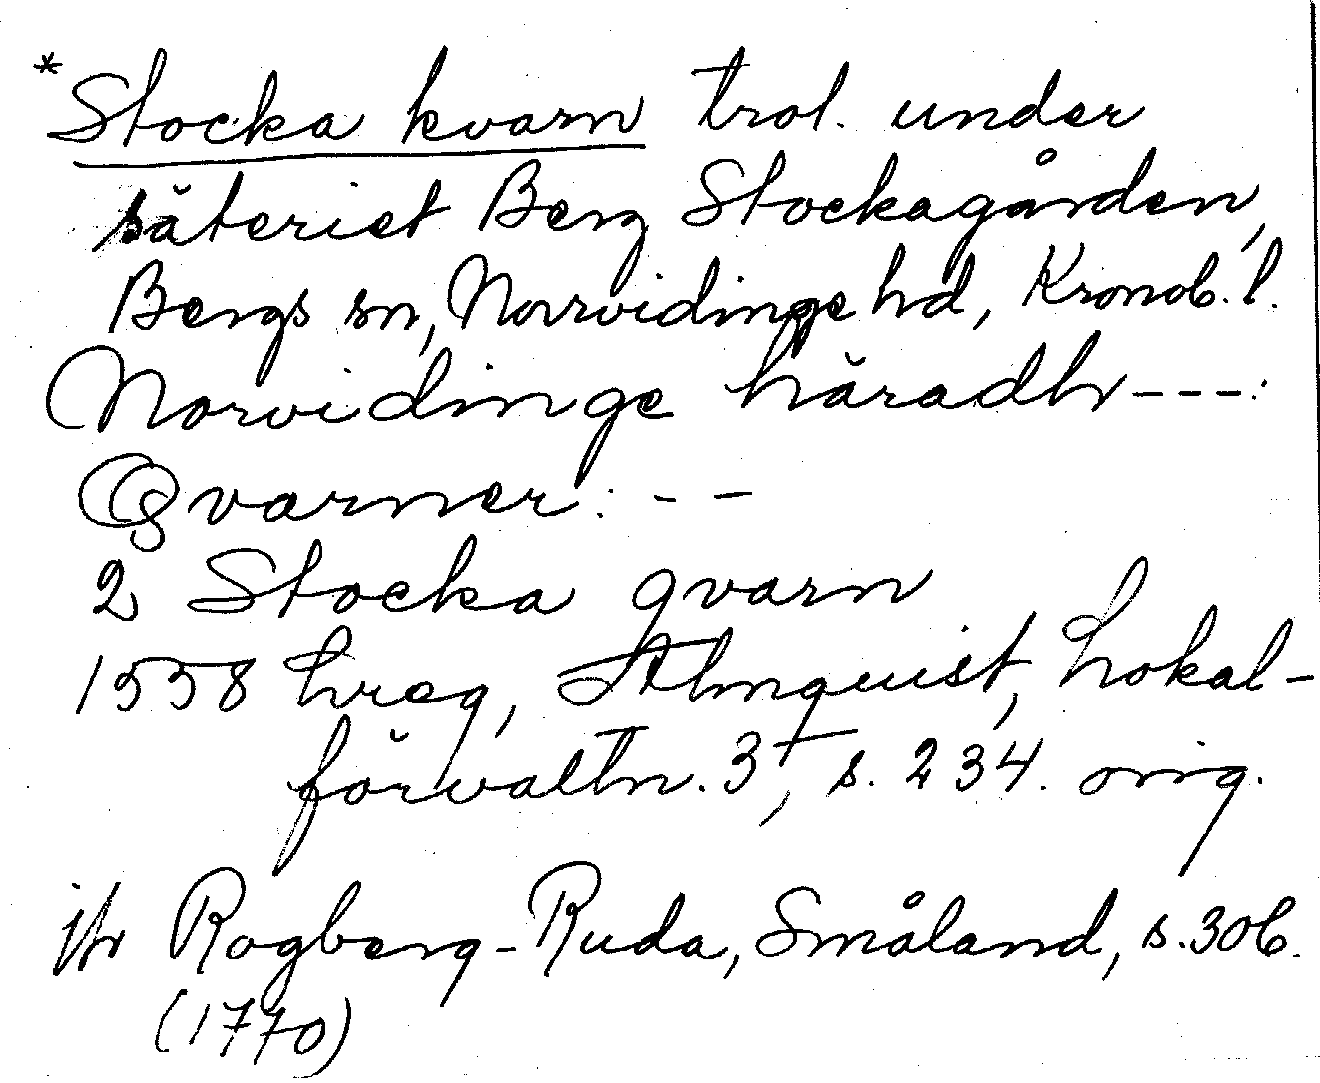 *Stocka kvarn trol. under
säteriet Berg Stockagården,
Bergs sn, Norrvidinge hd, Kronob. l.
Norvidinge häradh ---:
Qvarner: --
2 Stocka qvarn
1558 hreg, Almquist, Lokal-
förvaltn. 3, s. 234. orig.
jfr Rogberg-Ruda, Småland, s. 306.
(1770)